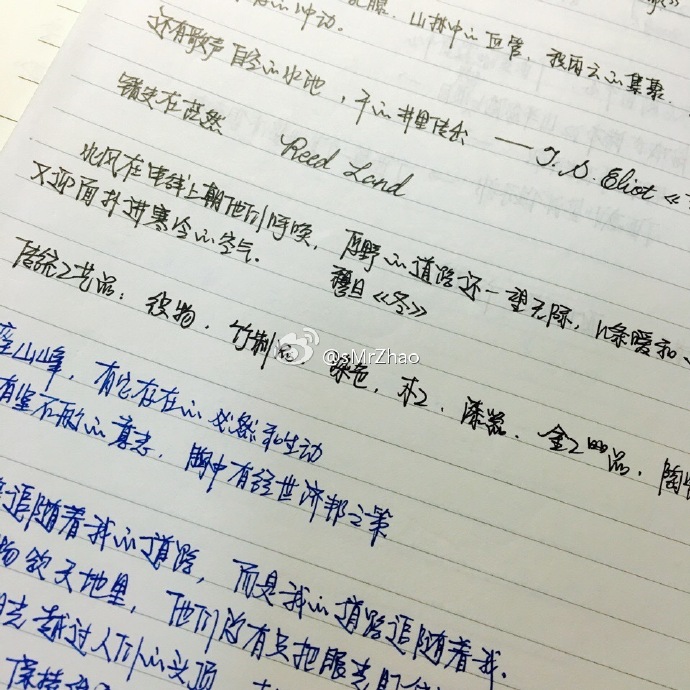 服，山林中的血管，我用云的集聚.
的冲动.
还有歌声自空的水池，干的井里传出 —— T. S. Eliot 《
锈史在茫然
Reed Land
北风在电线上朝他们呼唤，原野的道路还一望无际，几条暖和
又迎面扑进寒冷的空气.
穆旦《冬》
传统工艺品：织物，竹制品，染色，木工，漆器，金工，陶
@sMrZhao
座山峰，有它存在的必然和生动
有坚不的意志，胸中有经世济邦之策
追随着我的道路，而是我的道路追随着我.
天地里，他们没有只把眼光盯
越过人们的头顶